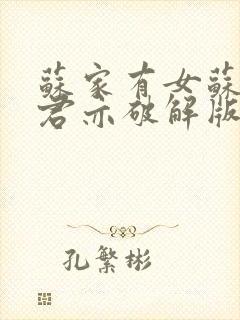 蘇家有女蘇
君亦破解版
孔繁彬